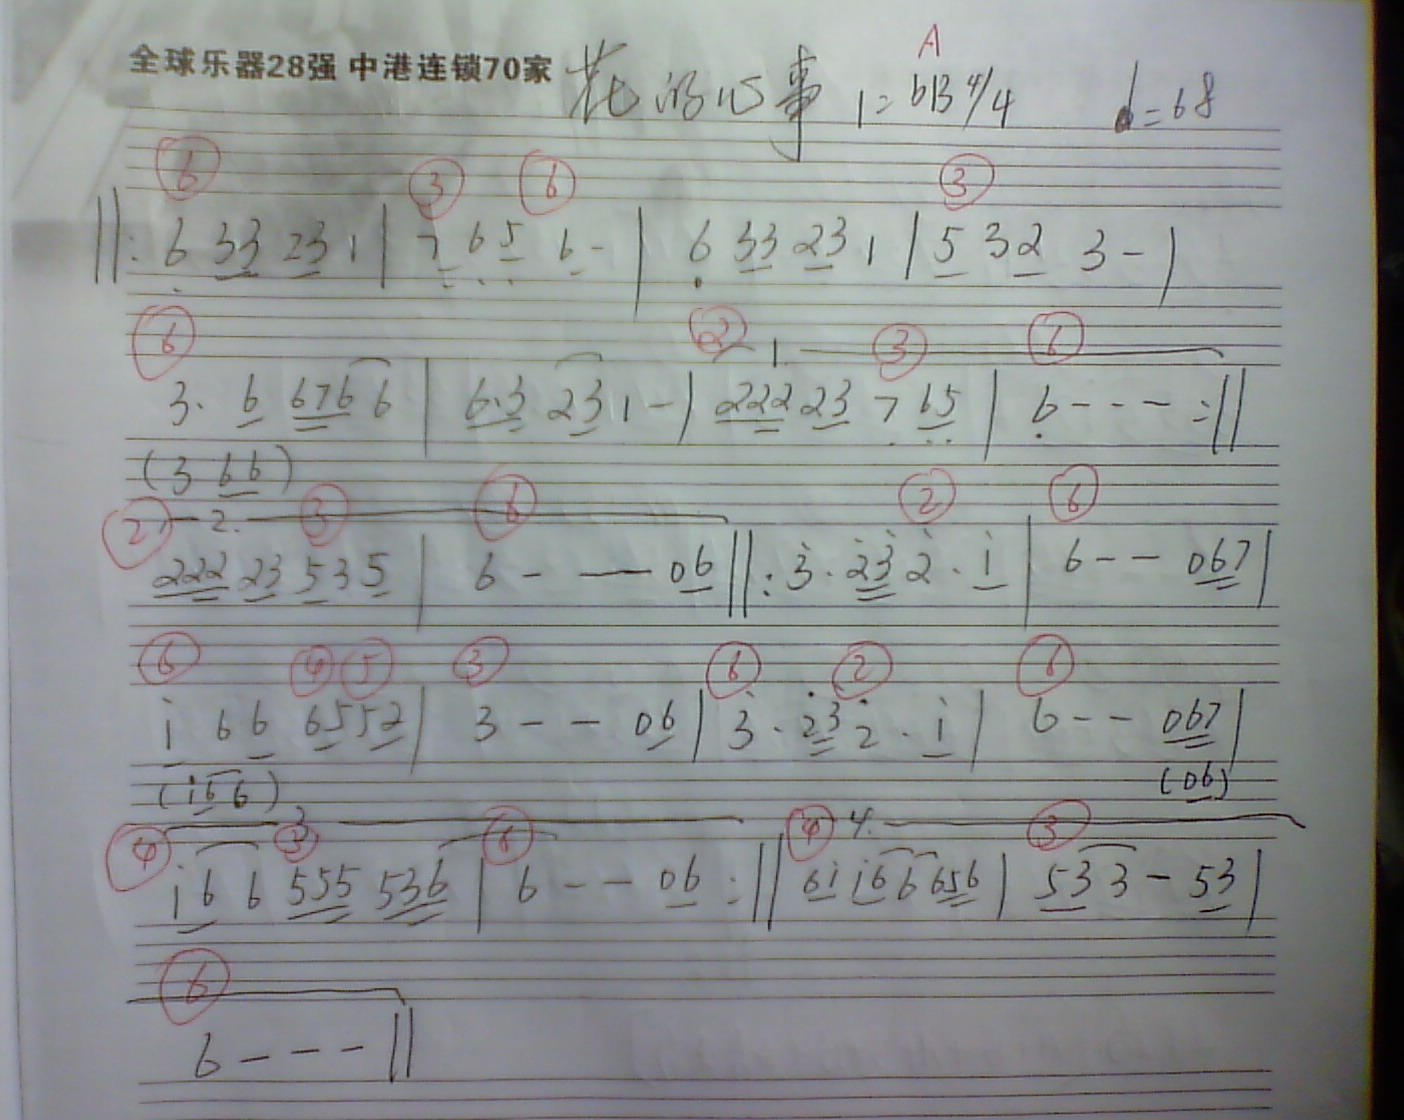 全球乐器28强 中港连锁70家 花的心事 1=bB 4/4 ♩=68
A
⑥ ③ ⑥ ③
‖: 6 33 23 1 | 7 65 6 - | 6 33 23 1 | 5 32 3 - |
⑥ ② 1. ③ ⑥
3. 6 6766 | 6.3 23 1 - | 222 23 7 65 | 6 - - - :‖
(3 66)
② 2. ③ ⑥ ② ⑥
222 23 535 | 6 - — 06 ‖: 3. 23 2. 1 | 6 - - 067 |
⑥ ④ ⑤ ③ ⑥ ② ⑥
1 66 6552 | 3 - - 06 | 3. 23 2. 1 | 6 - - 067 |
(i66) (06)
④ 3. ③ ⑥ ④ 4. ③
i6 6 555 536 | 6 - - 06 :‖ 6i i6 6656 | 53 3 - 53 |
⑥
6 - - - ‖